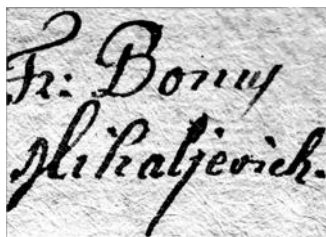 Fr: Bonus
Mihaljevich.